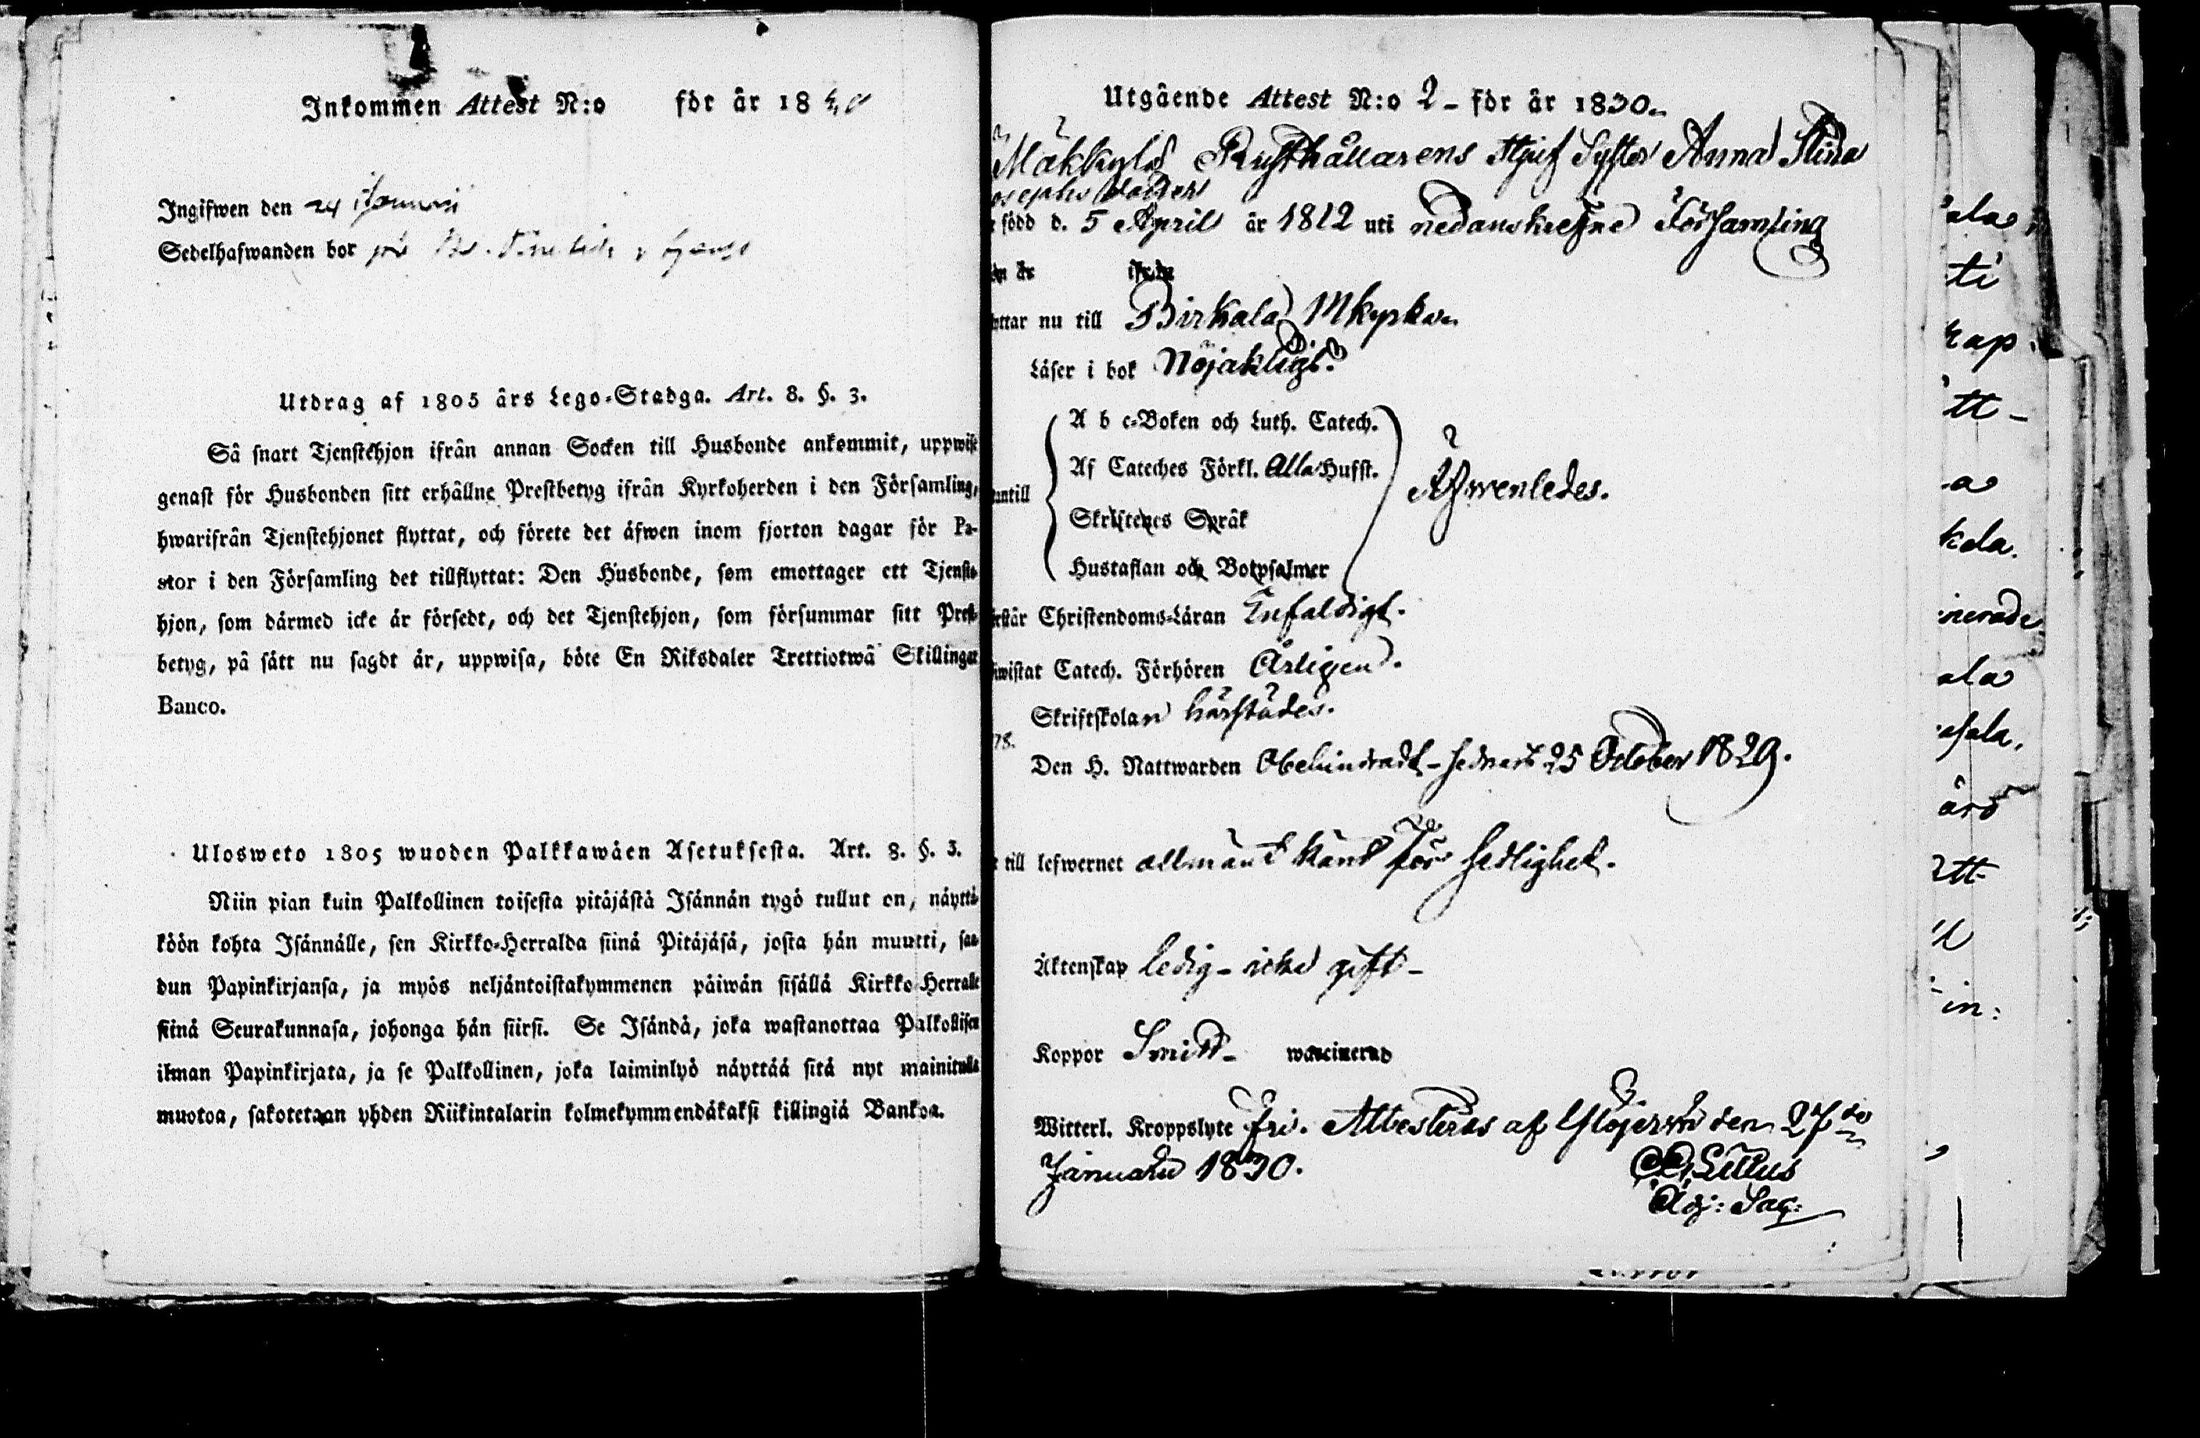 Inkommen Attest N:o för år 18
Ingifwen den 24
Sedelhafwanden bor
Utdrag af 1805 års Lego-Stadga. Art. 8. §. 3.
Så snart Tjenstehjon ifrån annan Socken till Husbonde ankommit, uppwise
genast för Husbonden sitt erhållne Prestbetyg ifrån Kyrkoherden i den Församling,
hwarifrån Tjenstehjonet flyttat, och förete det äfwen inom fjorton dagar för Pa-
stor i den Församling det tillflyttat: Den Husbonde, som emottager ett Tjenste-
hjon, som därmed icke är försedt, och det Tjenstehjon, som försummar sitt Prest-
betyg, på sätt nu sagdt är, uppwisa, böte En Riksdaler Trettiotwå Skillingar
Banco.
Ulosweto 1805 wuoden Palkkawäen Asetuksesta. Art. 8. §. 3.
Niin pian kuin Palkollinen toisesta pitäjästä Isännän tygö tullut on, näyttä-
köön kohta Isännälle, sen Kirkko-Herralda siinä Pitäjäsä, josta hän muutti, saa-
dun Papinkirjansa, ja myös neljäntoistakymmenen päiwän sisällä Kirkko-Herralle
siinä Seurakunnasa, johonga hän siirsi. Se Isändä, joka wastanottaa Palkollisen
ilman Papinkirjata, ja se Palkollinen, joka laiminlyö näyttää sitä nyt mainitulla
muotoa, sakotetaan yhden Riikintalarin kolmekymmendäkaksi killingiä Bankoa.
Utgående Attest N:o 2 - för år 1830.
Rusthållarens Syster Anna Stina
osephs dotter
född d. 5 April år 1812 uti nedanskrefne Församling
än är ifrån
yttar nu till Birkala Mkyrka
Läser i bok Nöjaktigt.
A b c-Boken och Luth. Catech.
Af Cateches Förkl. Alla Hufst.
untill Äfwenledes.
Skriftenes Språk
Hustaflan och Botpsalmer
rstår Christendoms-Läran Enfaldigt.
wistat Catech. Förhören Årligen.
Skriftskolan härstädes.
Den H. Nattwarden Obehindradt - sednast 25 October 1829.
till lefwernet allmänt känd för sedlighet.
Äktenskap ledig - icke gift -
Koppor waccinerad
Witterl. Kroppslyte fri. Attesteras af den 27
Januarii 1830.
ala
ti
kap
tt -
a
kola.
nerade
ala
sala.
ärd
tt
in: